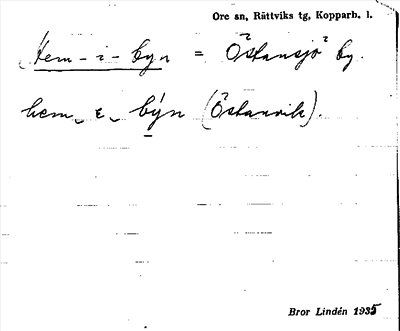 Ore sn, Rättviks tg, Kopparb. l.
Hem-i-byn = Östansjö by.
hem ε býn (Östanvik).
Bror Lindén 1935